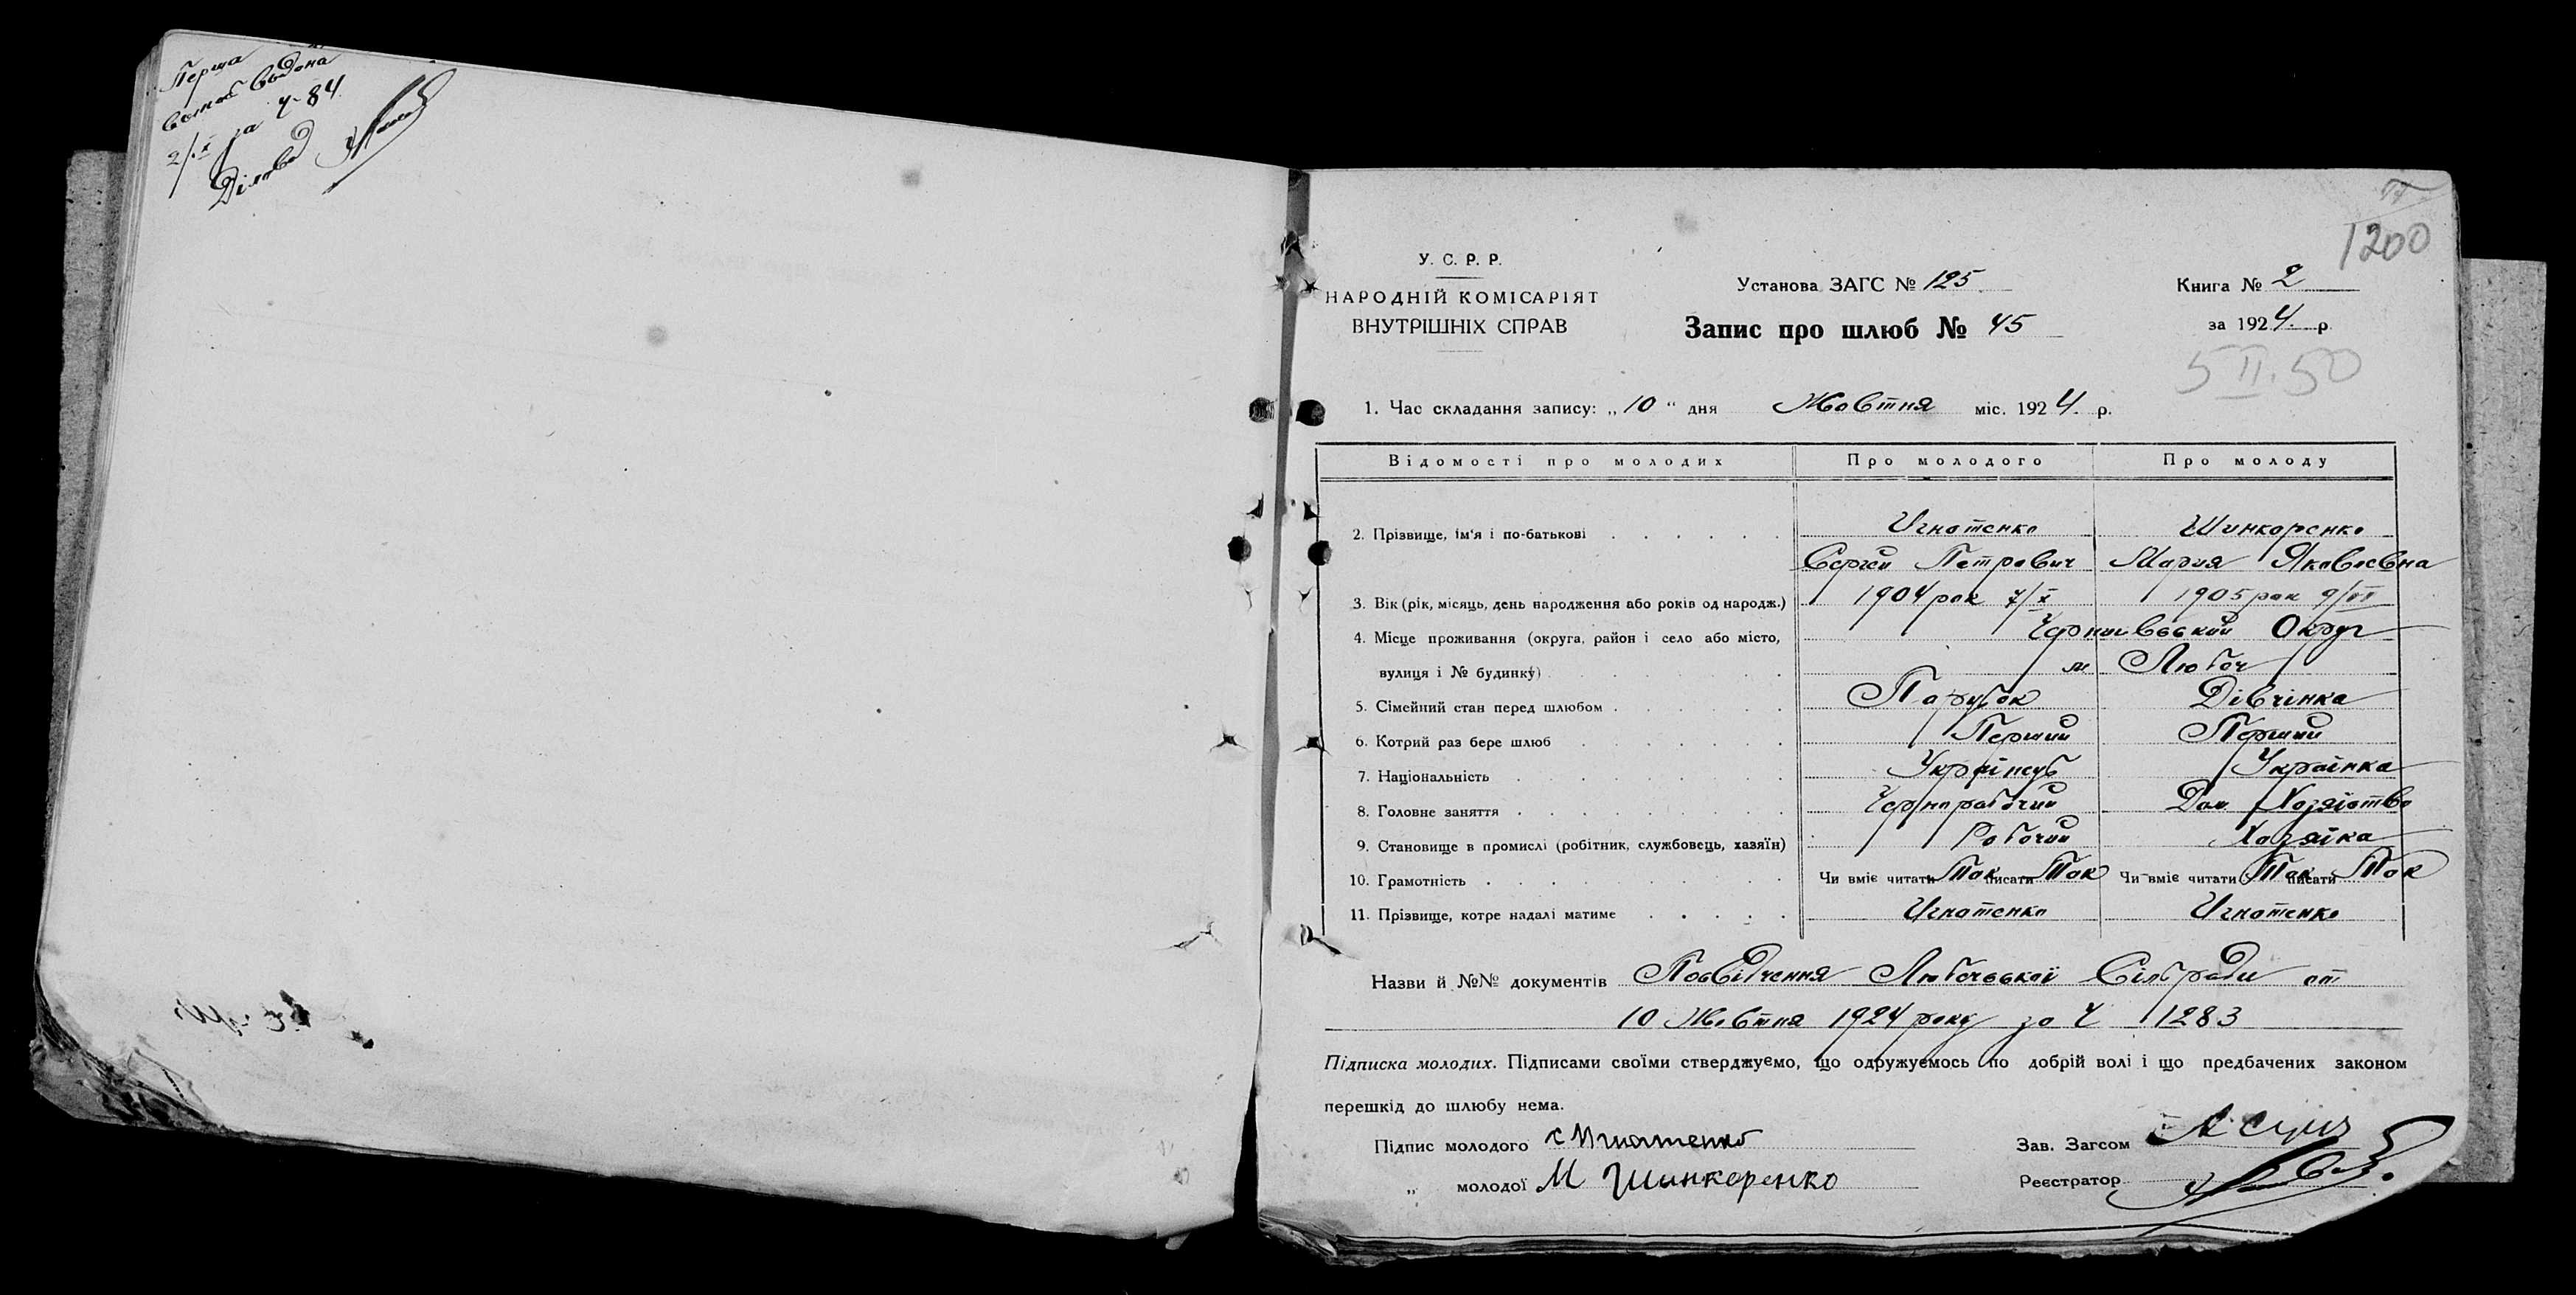 Перша
выдана
2/X за Ч-84
Діловод
1200
У. С. Р. Р.
НАРОДНІЙ КОМІСАРІЯТ
ВНУТРІШНІХ СПРАВ
Установа ЗАГС № 125
Запис про шлюб № 45
Книга № 2
за 1924 р.
5 II. 50
1. Час складання запису: „10“ дня Жовтня міс. 1924 р.
Відомості про молодих Про молодого Про молоду
2. Прізвище, ім'я і по-батькові Игнатенко Шинкаренко
Сергей Петрович Мария Яковлевна
3. Вік (рік, місяць, день народження або років од народж.) 1904 рок 7/X 1905 рок 9/VI
4. Місце проживання (округа, район і село або місто, Округ
вулиця і № будинку) м Любеч
5. Сімейний стан перед шлюбом Парубок Дівчінка
6. Котрий раз бере шлюб Перший Перший
7. Національність Українець Українка
8. Головне заняття Чернорабочий Дом Хозяйство
9. Становище в промислі (робітник, службовець, хазяїн) Робочий Хозяйка
10. Грамотність Чи вміє читати Так писати Так Чи вміє читати Так писати Так
11. Прізвище, котре надалі матиме Игнатенко Игнатенко
Назви й №№ документів Посвідчення Любечської Сільради от
10 Жовтня 1924 року за Ч 1283
Підписка молодих. Підписами своїми стверджуємо, що одружуємось по добрій волі і що предбачених законом
перешкід до шлюбу нема.
Підпис молодого с Игнатенко Зав. Загсом
„ молодої М Шинкаренко Реєстратор